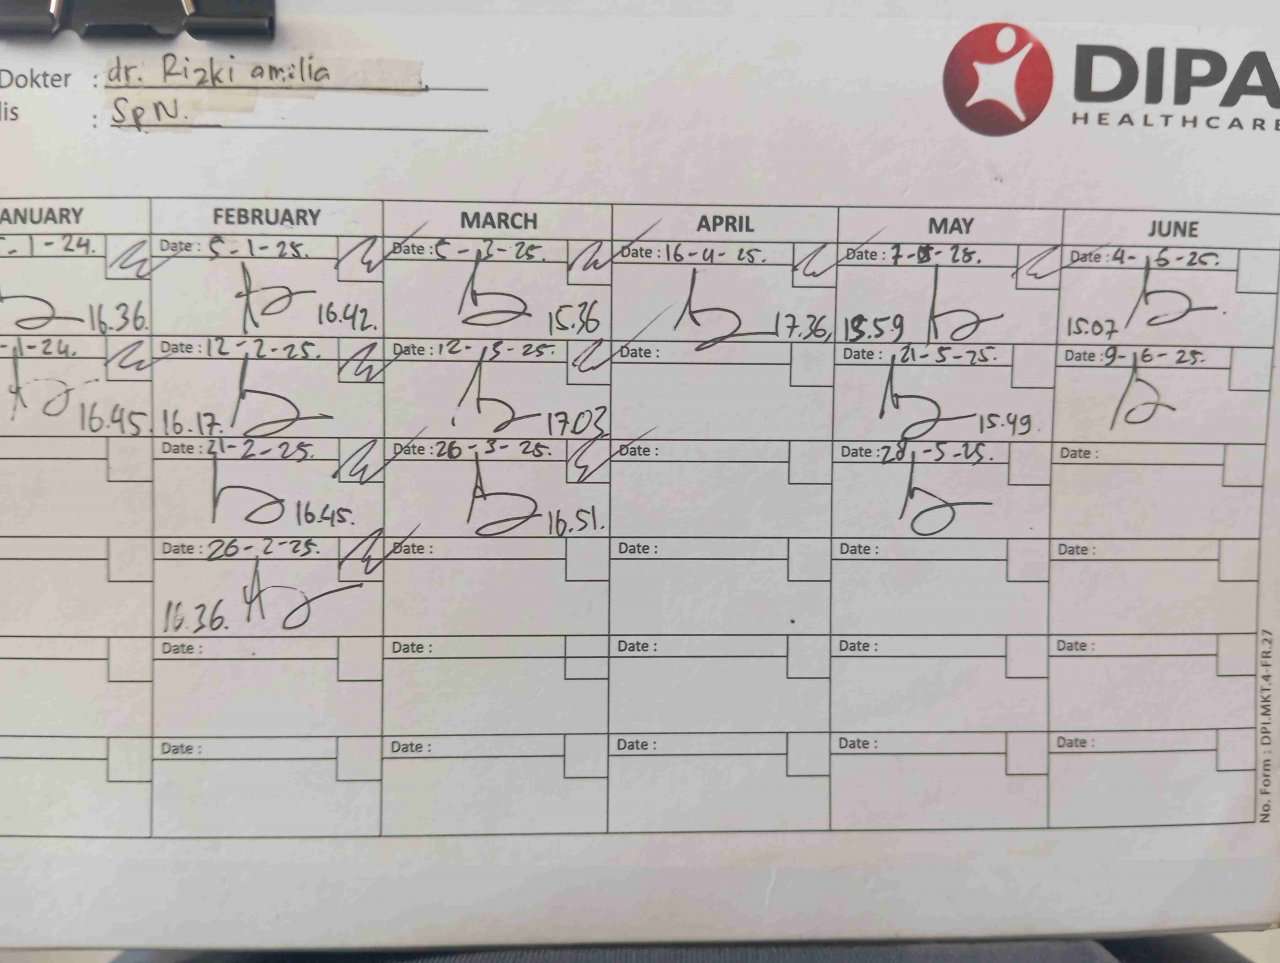 Dokter : dr. Rizki amilia
lis : SpN.
DIPA
HEALTHCARE
ANUARY FEBRUARY MARCH APRIL MAY JUNE
-1-24. Date : 5-1-25. Date : 5-3-25. Date : 16-4-25. Date : 7-5-25. Date : 4-6-25.
16.36. 16.42. 15.36 17.36, 15.59 15.07
-1-24. Date : 12-2-25. Date : 12-3-25. Date : Date : 21-5-25. Date : 9-6-25.
16.45. 16.17. 17.03 15.49.
Date : 21-2-25. Date : 26-3-25. Date : Date : 28-5-25. Date :
16.45. 16.51.
Date : 26-2-25. Date : Date : Date : Date :
16.36.
Date : Date : Date : Date : Date :
Date : Date : Date : Date : Date :
No. Form : DPI.MKT.4-FR.27